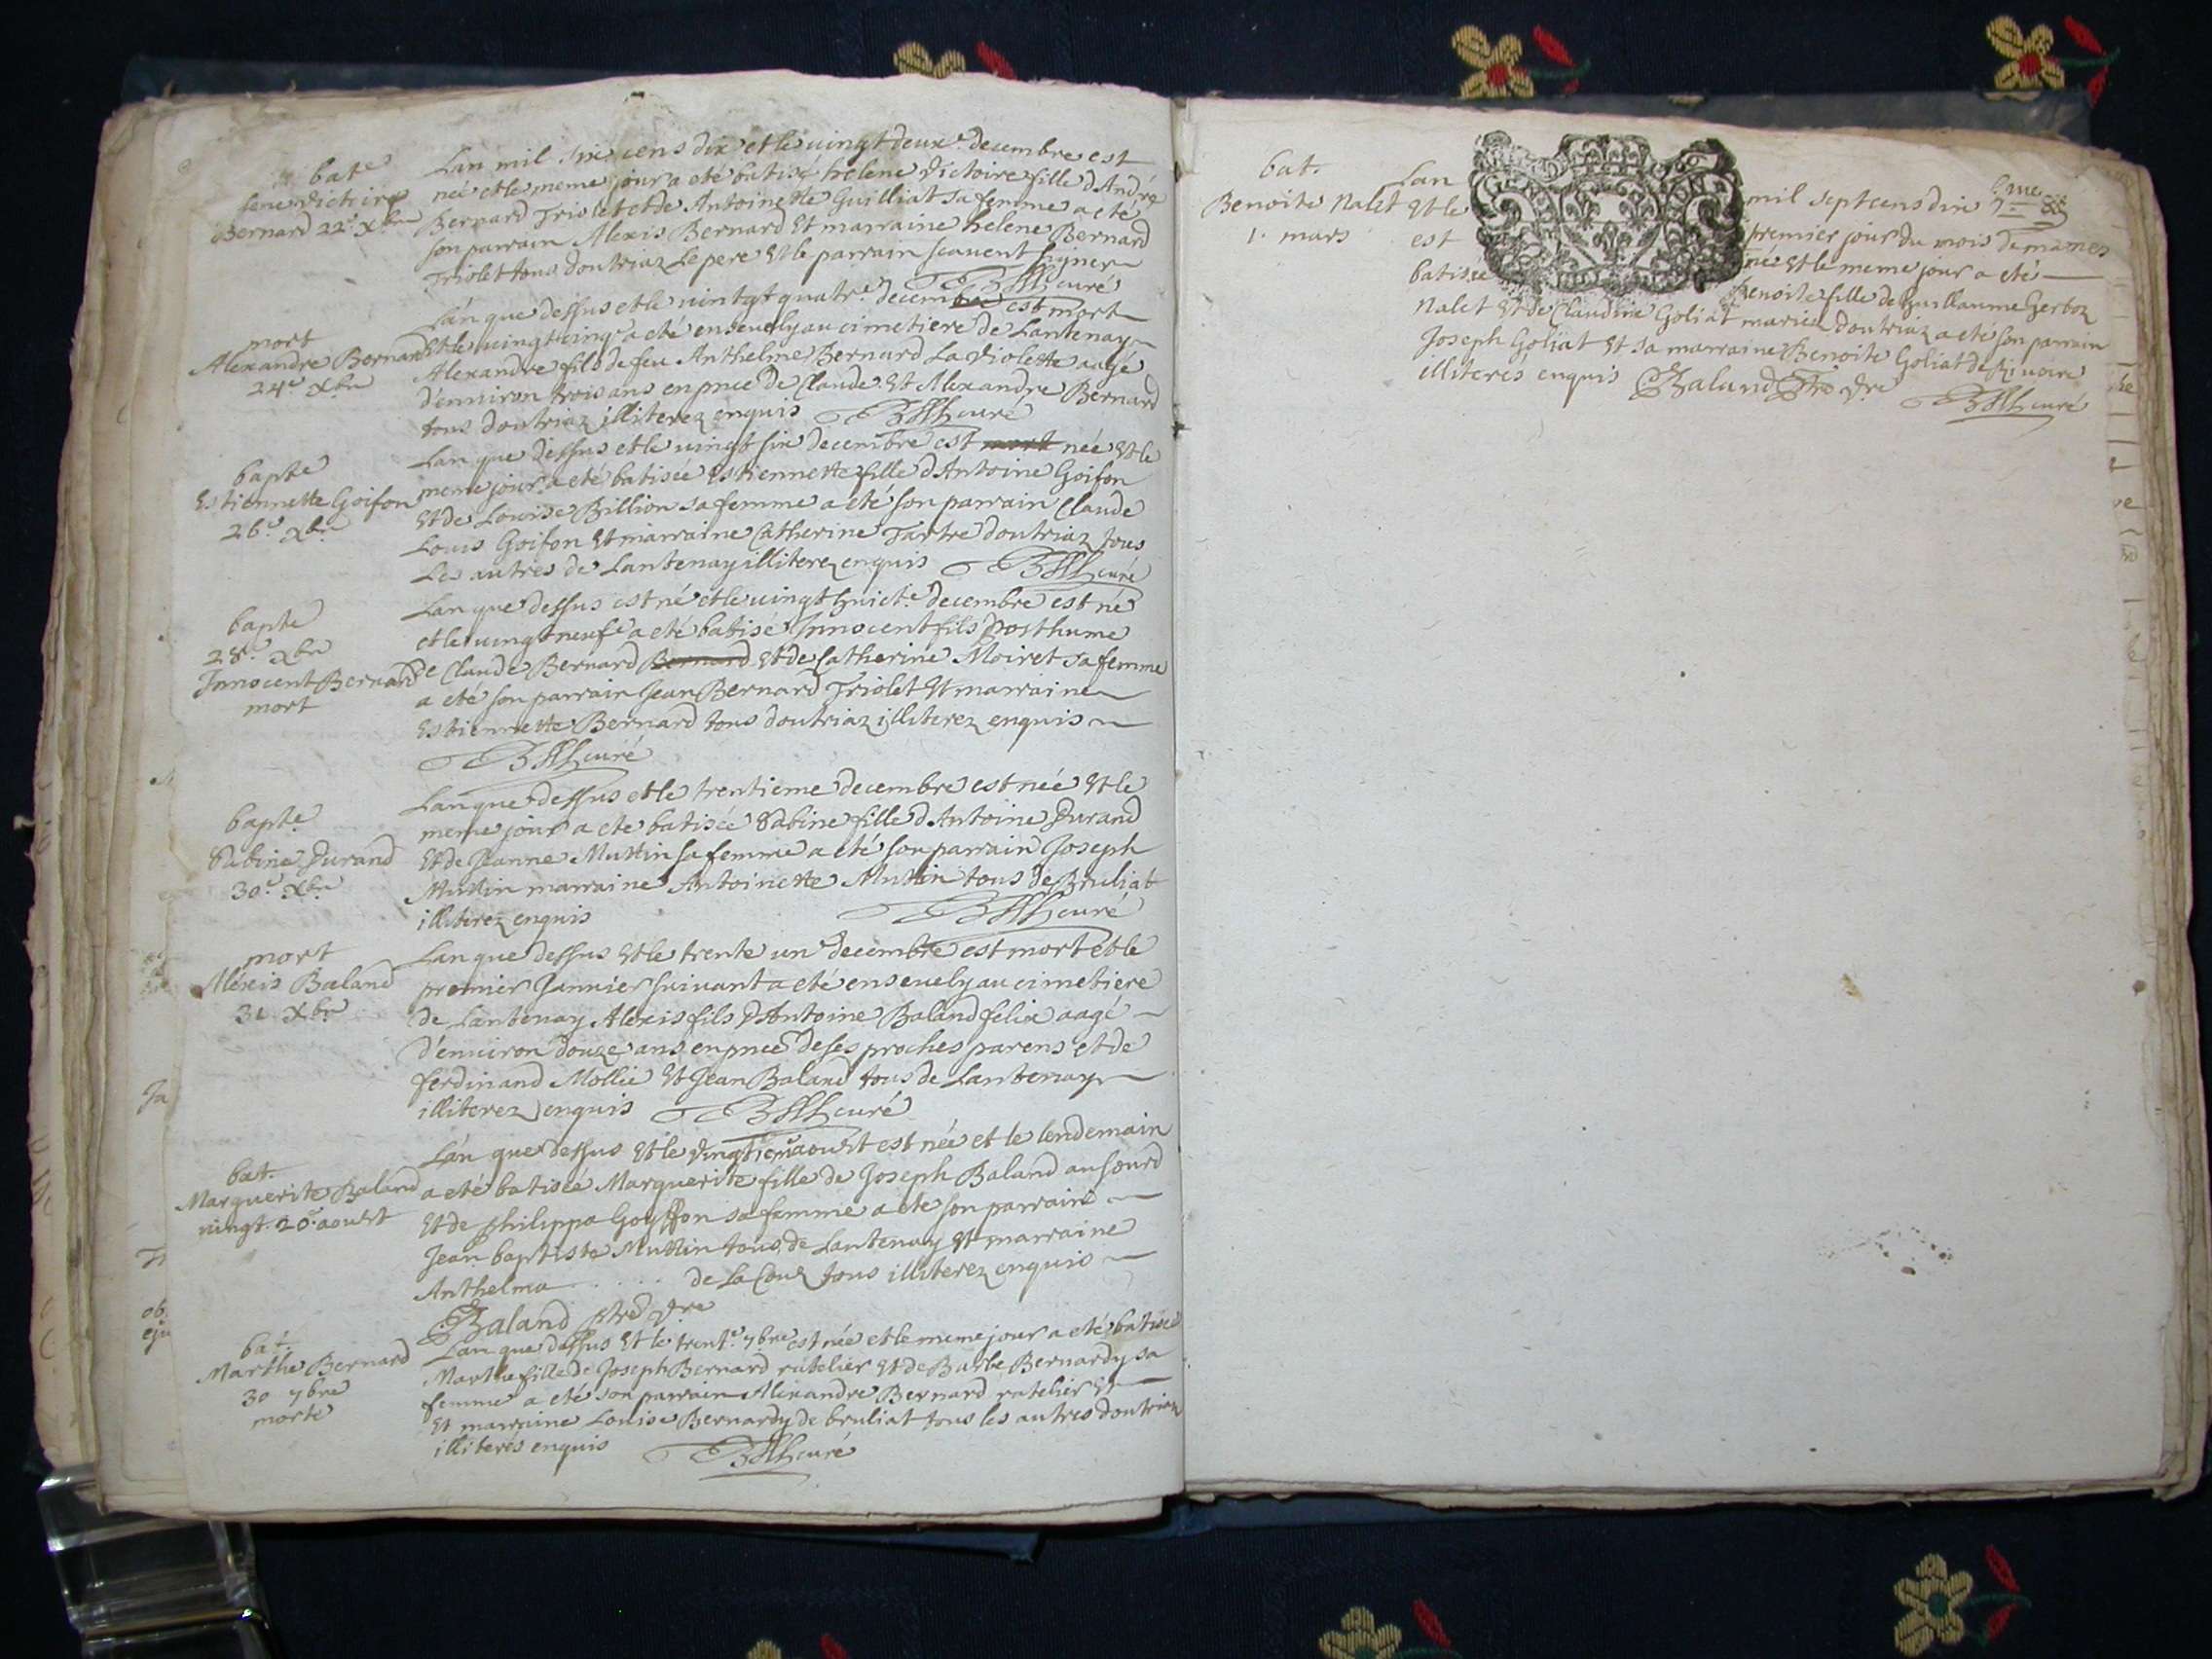 bat.e
lene victoire
Bernard 22.e Xbre
Lan mil six cens dix et le uingt deux.e decembre est
née et le meme jour a eté batisé helene Victoire fille d'André
Bernard Triolet et de Antoinette Guilliat sa femme a eté
son parrain Alexis Bernard Et marraine helene Bernard
Triolet tous doutriaz Le pere Et le parrain scauent signer
curé
mort
Alexandre Bernard
24.e Xbre
Lan que dessus et le uintgt quatr.e decembre est mort
Et le uingt cinq.e a eté enseuely au cimetiere de Lantenay
Alexandre fils de feu Anthelme Bernard La Violette aagé
d'enuiron trois ans en pnce de Claude Et Alexandre Bernard
tous doutriaz illiterez enquis curé
bapte
Estiennette Goifon
26.e Xbre
Lan que dessus et le uingt six decembre est mort née Et le
meme jour a eté batisée Estiennette fille d'Antoine Goifon
Et de Louise Billion sa femme a eté son parrain Claude
Louis Goifon Et marraine Catherine Tartre doutriaz tous
Les autres de Lantenay illiterez enquis curé
bapte
28.e Xbre
Innocent Bernard
mort
Lan que dessus est né et le uingt huict.e decembre est né
et le uingt neuf.e a eté batisé Innocent fils posthume
de Claude Bernard Bernard Et de Catherine Moiret sa femme
a eté son parrain Jean Bernard Triolet Et marraine
Estiennette Bernard tous doutriaz illiterez enquis
curé
bapte
Sabine Durand
30.e Xbre
Lan que dessus et le trentieme decembre est née Et le
meme jour a ete batisée Sabine fille d'Antoine Durand
Et de Jeanne Muttin sa femme a eté son parrain Joseph
Muttin marraine Antoinette Muttin tous de Bruliat
illiterez enquis curé
mort
Alexis Baland
31 Xbre
Lan que dessus Et le trente un decembre est mort et le
premier Januier suiuant a eté enseuely au cimetiere
de Lantenay Alexis fils d'Antoine Baland felix aagé
d'enuiron douze ans en pnce de ses proches parens et de
ferdinand Mollie Et Jean Baland tous de Lantenay
illiterez enquis curé
bat.
Marguerite Baland
uingt. 20.e aoust
Lan que dessus Et le Vingtiem aoust est née et le lendemain
a eté batiseé Marguerite fille de Joseph Baland au sourd
Et de philippa Goyffon sa femme a ete son parrain
Jean baptiste Muttin tous de Lantenay Et marraine
Anthelma . . . . . de La Cour tous illiterez enquis
Baland ptre Vre
bat.
Marthe Bernard
30 7bre
morte
Lan que dessus Et le trent.e 7bre est née et le meme jour a eté batisée
Marthe fille de Joseph Bernard ratelier Et de Barbe Bernardy sa
femme a eté son parrain Alexandre Bernard ratelier Et
Et marraine Louise Bernardy de bruliat tous les autres doutriaz
illiterés enquis curé
bat.
Benoite Nalet
1. mars
Lan mil sept cens dix
Et le premier jour du mois de mars
est née Et le meme jour a eté
batisée Benoite fille de Guillaume Gerboz
Nalet Et de Claudine Goliat mariez doutriaz a eté son parrain
Joseph Goliat Et sa marraine Benoite Goliat de Riuoire
illiterés enquis Baland ptre Vre
curé